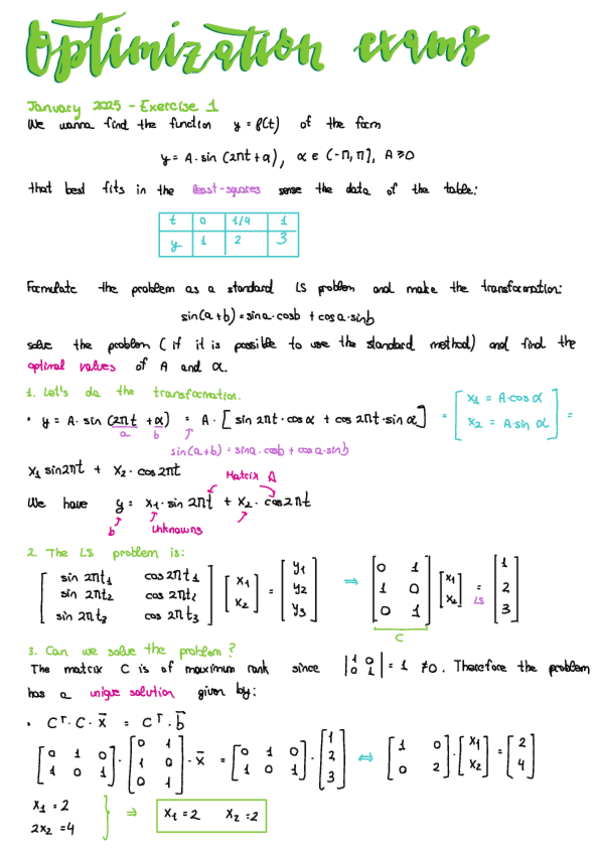 Optimization exams
January 2025 - Exercise 1
We wanna find the function y = f(t) of the form
y = A · sin (2πt + α), α ∈ (-π, π], A ≥ 0
that best fits in the least-squares sense the data of the table:
t 0 1/4 1
y 1 2 3
Formulate the problem as a standard LS problem and make the transformation:
sin(a+b) = sina · cosb + cosa · sinb
solve the problem (if it is possible to use the standard method) and find the
optimal values of A and α.
1. Let's do the transformation.
• y = A · sin (2πt + α) = A · [sin 2πt · cos α + cos 2πt · sin α] = [x1 = A·cos α x2 = A·sin α] =
a b
sin(a+b) = sina · cosb + cosa · sinb
x1 sin2πt + x2 · cos2πt
Matrix A
We have y = x1 · sin 2πt + x2 · cos2πt
b Unknowns
2. The LS problem is:
[sin 2πt1 cos 2πt1] [x1] = [y1] ⇒ [0 1] [x1] = [1]
[sin 2πt2 cos 2πt2] [x2] [y2] [1 0] [x2] LS [2]
[sin 2πt3 cos 2πt3] [y3] [0 1] [3]
C
3. Can we solve the problem?
The matrix C is of maximum rank since |1 0 0 1| = 1 ≠ 0. Therefore the problem
has a unique solution given by:
• Cᵀ · C · x̄ = Cᵀ · b̄
[0 1 0] · [0 1] · x̄ = [0 1 0] · [1] ⇔ [1 0] · [x1] = [2]
[1 0 1] [1 0] [1 0 1] [2] [0 2] [x2] [4]
[0 1] [3]
x1 = 2
2x2 = 4
⇒ x1 = 2 x2 = 2